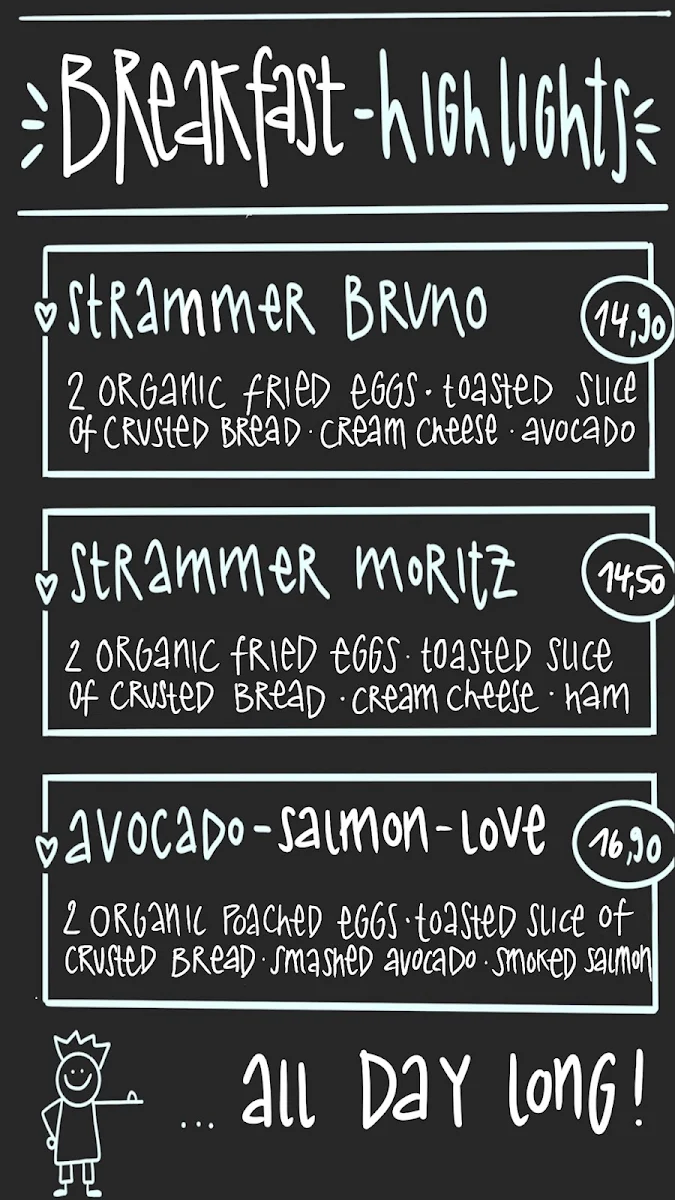 Breakfast-highlights
Strammer Bruno
14,90
2 organic fried eggs · toasted slice
of crusted bread · cream cheese · avocado
Strammer Moritz
14,50
2 organic fried eggs · toasted slice
of crusted bread · cream cheese · ham
avocado-salmon-love
16,90
2 organic poached eggs · toasted slice of
crusted bread · smashed avocado · smoked salmon
... all day long!